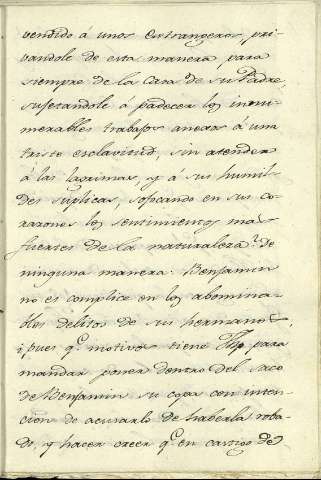 vendido á unos estrangeros pri-
vandole de esta manera para
siempre de la Casa de su Padre,
sujetandole a padecer los innu-
merables trabajos anexos á una
triste esclavitud, sin atender
á las lagrimas, y á sus humil-
des suplicas, sofocando en sus co-
razones los sentimientos mas
fuertes de la naturaleza? De
ninguna manera: Benjamin
no es complice en los abomina-
bles delitos de sus hermanos,
¿pues q.e motivo tiene Jhp para
mandar poner dentro del saco
de Benjamin su copa con inten-
cion de acusarlo de haberla roba-
do, y hacer creer q.e en castigo de